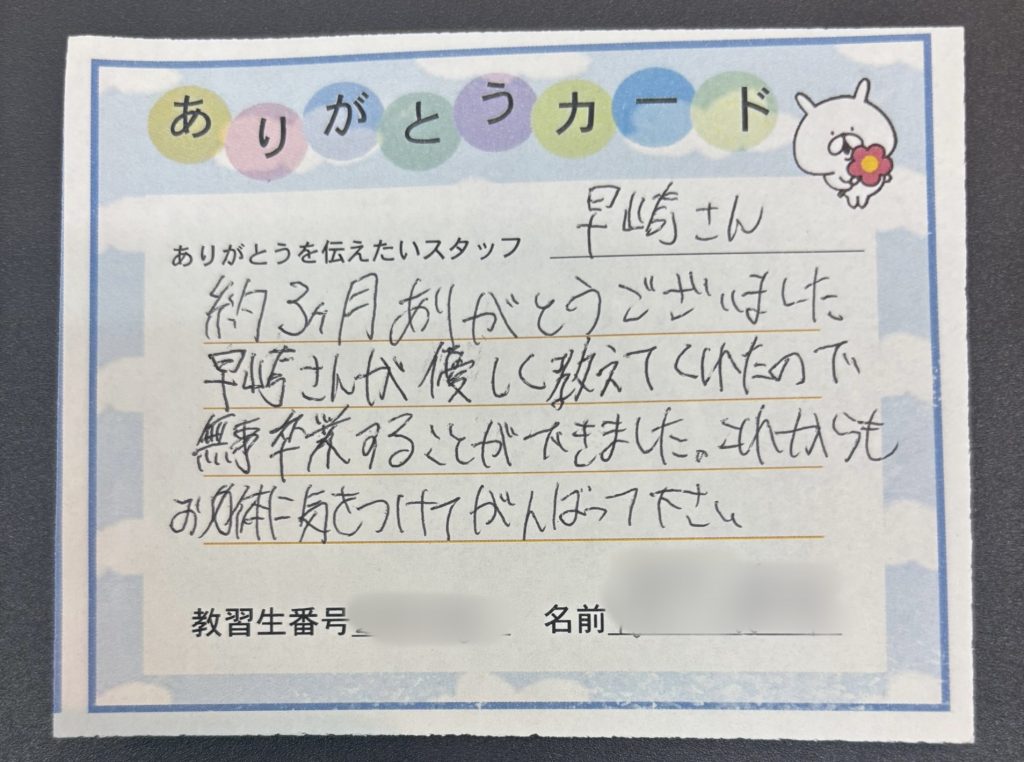 ありがとうカード
ありがとうを伝えたいスタッフ 早崎さん
約3ヶ月ありがとうございました
早崎さんが優しく教えてくれたので
無事卒業することができました。これからも
お身体に気をつけてがんばって下さい
教習生番号 名前